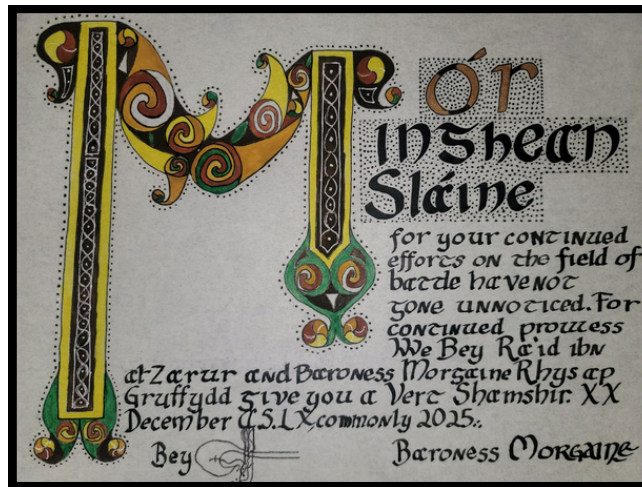 Mór
inghean
Sláine
for your continued
efforts on the field of
battle have not
gone unnoticed. For
continued prowess
We Bey Ra'id ibn
at Zarur and Baroness Morgaine Rhys ap
Gruffydd give you a Vert Shamshir. XX
December A.S.LX, commonly 2025.
Bey
Baroness Morgaine